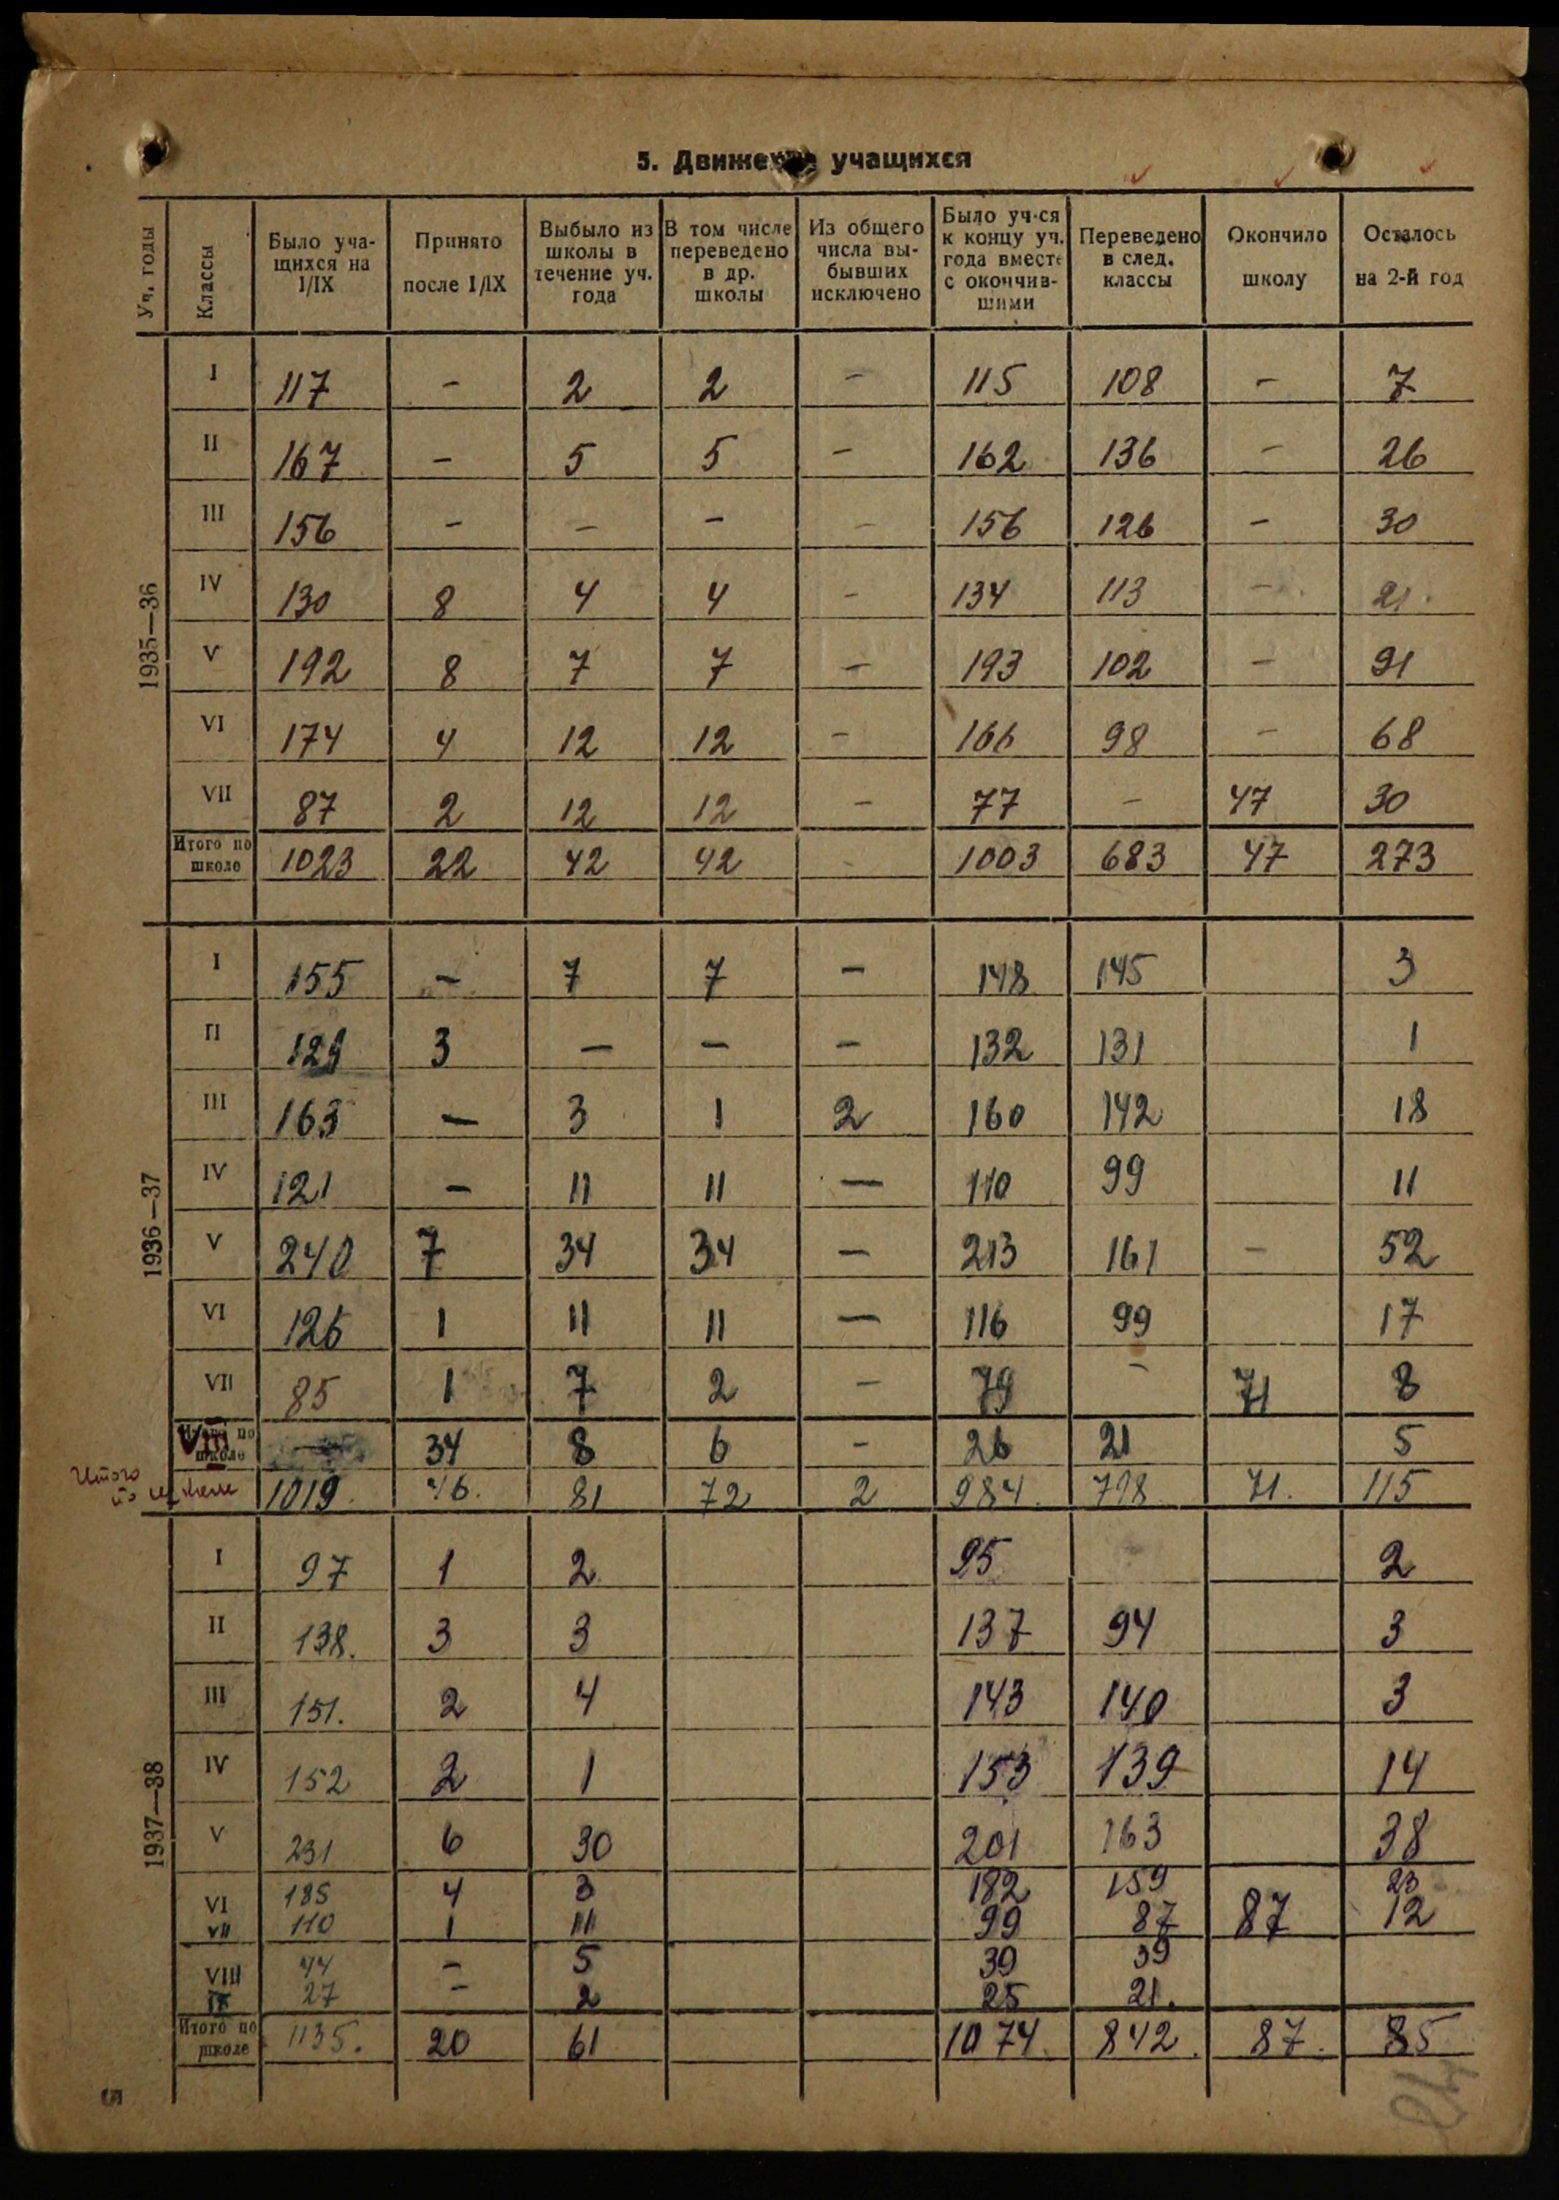 5. Движение учащихся
Уч. годы | Классы | Было учащихся на 1/IX | Принято после 1/IX | Выбыло из школы в течение уч. года | В том числе переведено в др. школы | Из общего числа выбывших исключено | Было уч-ся к концу уч. года вместе с окончившими | Переведено в след. классы | Окончило школу | Осталось на 2-й год
1935—36
I | 117 | – | 2 | 2 | – | 115 | 108 | – | 7
II | 167 | – | 5 | 5 | – | 162 | 136 | – | 26
III | 156 | – | – | – | – | 156 | 126 | – | 30
IV | 130 | 8 | 4 | 4 | – | 134 | 113 | – | 21
V | 192 | 8 | 7 | 7 | – | 193 | 102 | – | 91
VI | 174 | 4 | 12 | 12 | – | 166 | 98 | – | 68
VII | 87 | 2 | 12 | 12 | – | 77 | – | 47 | 30
Итого по школе | 1023 | 22 | 42 | 42 | – | 1003 | 683 | 47 | 273
1936—37
I | 155 | – | 7 | 7 | – | 148 | 145 | | 3
II | 129 | 3 | – | – | – | 132 | 131 | | 1
III | 163 | – | 3 | 1 | 2 | 160 | 142 | | 18
IV | 121 | – | 11 | 11 | – | 110 | 99 | | 11
V | 240 | 7 | 34 | 34 | – | 213 | 161 | – | 52
VI | 126 | 1 | 11 | 11 | – | 116 | 99 | | 17
VII | 85 | 1 | 7 | 2 | – | 79 | – | 71 | 8
VIII | | 34 | 8 | 6 | – | 26 | 21 | | 5
Итого по школе | 1019 | 46. | 81 | 72 | 2 | 984. | 798 | 71. | 115
1937—38
I | 97 | 1 | 2 | | | 95 | | | 2
II | 138. | 3 | 3 | | | 137 | 94 | | 3
III | 151. | 2 | 4 | | | 143 | 140 | | 3
IV | 152 | 2 | 1 | | | 153 | 139 | | 14
V | 231 | 6 | 30 | | | 201 | 163 | | 38
VI | 185 | 4 | 3 | | | 182 | 159 | | 23
VII | 110 | 1 | 11 | | | 99 | 87 | 87 | 12
VIII | 44 | – | 5 | | | 39 | 39
IX | 27 | – | 2 | | | 25 | 21.
Итого по школе | 1135. | 20 | 61 | | | 1074. | 842. | 87. | 85
5